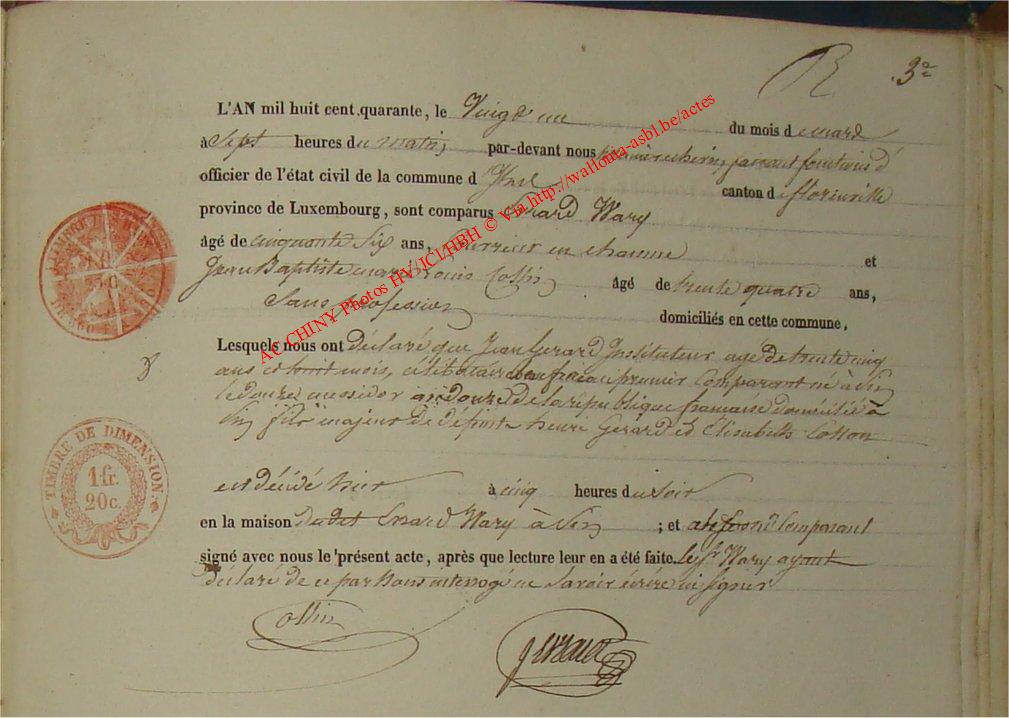 R 3e
L'AN mil huit cent quarante, le Vingt un du mois de mard
à Sept heures du matin par-devant nous premier échevin faisant fonctions d'
officier de l'état civil de la commune d canton de florenville
province de Luxembourg, sont comparus Erard Wary
âgé de cinquante six ans, ouvrier en chanvre et
Jean Baptiste marie Louis Collin âgé de trente quatre ans,
Sans profession domiciliés en cette commune,
Lesquels nous ont déclaré que Jean Gerard Instituteur agé de trente cinq
ans et huit mois, célibataire premier Comparant né à
le douze messidor an douze de la république française domicilié à
fils majeur de défunts henri Gerard et Elisabeth Cotton
est décédé hier à cinq heures du soir
en la maison dudit Erard Wary à ; et a le second Comparant
signé avec nous le présent acte, après que lecture leur en a été faite. le Sr Wary ayant
déclaré de ce par Nous interrogé ne Savoir écrire ni signer
Collin
TIMBRE DE DIMENSION.
1 fr.
20 c.
AC CHINY Photos HV/JCl/HBH © Via http://wallonia-asbl.be/actes